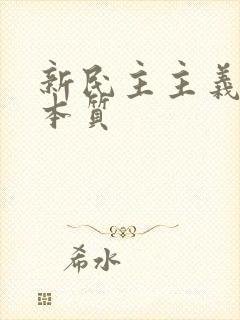 新民主主義
本質
希水